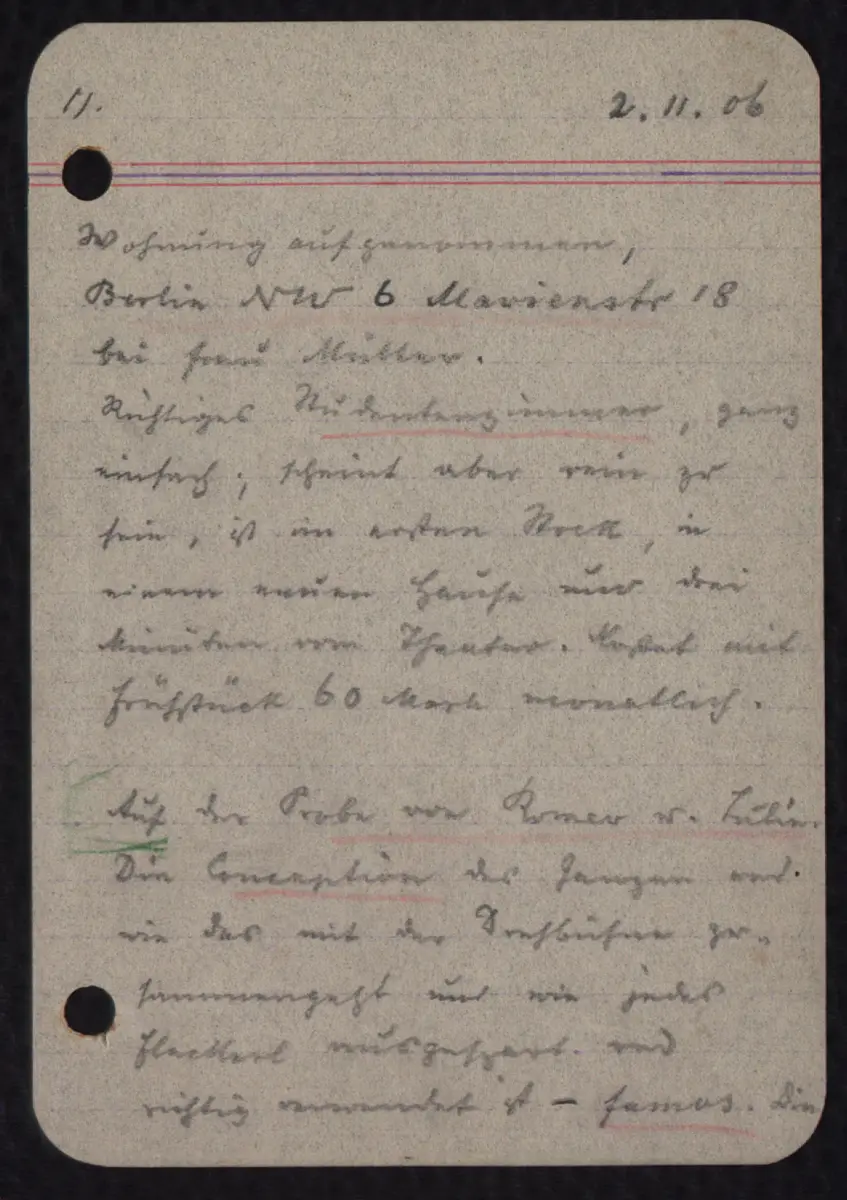 11. 2. 11. 06
Wohnung aufgenommen,
Berlin NW 6 Marienstr 18
bei Frau Müller.
Richtiges Studentenzimmer, ganz
einfach; scheint aber rein zu
sein, ist im ersten Stock, in
einem neuen Hause nur drei
Minuten vom Theater. Kostet mit
Frühstück 60 Mark monatlich.
Auf der Probe von Romeo u. Julie.
Die Conception des Ganzen und
wie das mit der Drehbühne zu-
sammengeht und wie jedes
Fleckerl ausgespart und
richtig verwendet ist – famos. Die